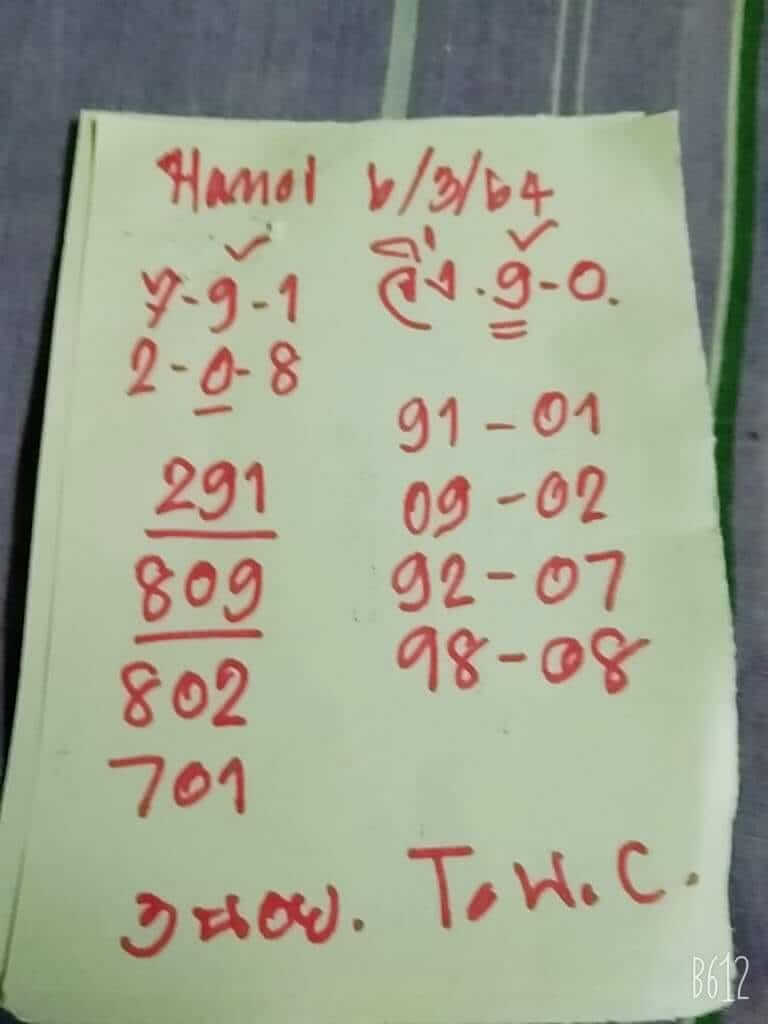 Hanoi 6/3/64
7-9-1
2-0-8
291
809
802
701
วิ่ง.9-0.
91-01
09-02
92-07
98-08
T.W.C.
B612